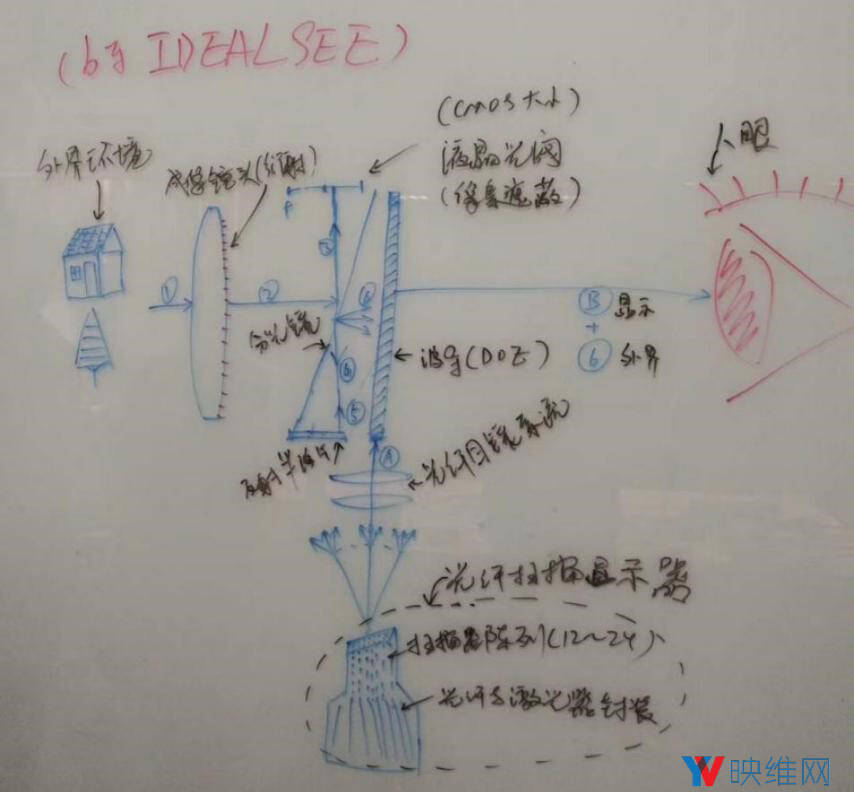 (by IDEALSEE)
外界环境
成像镜头(衍射)
(CMOS大小)
液晶光阀
(像素遮蔽)
人眼
①
②
③
④
⑤
分光镜
波导(DOE)
Ⓑ 显示
+
⑥ 外界
反射
Ⓐ
光纤目镜系统
光纤扫描显示器
扫描器阵列(12~24)
光纤与激光器封装
YV 映维网